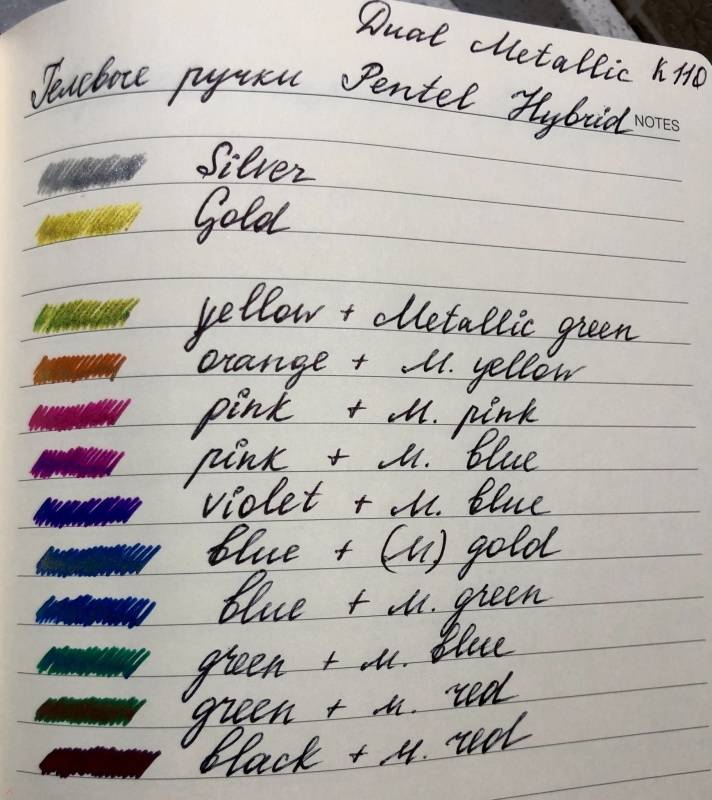 Dual Metallic K110
Гелевые ручки Pentel Hybrid
NOTES
Silver
Gold
yellow + Metallic green
orange + M. yellow
pink + M. pink
pink + M. blue
violet + M. blue
blue + (M) gold
blue + M. green
green + M. blue
green + M. red
black + M. red